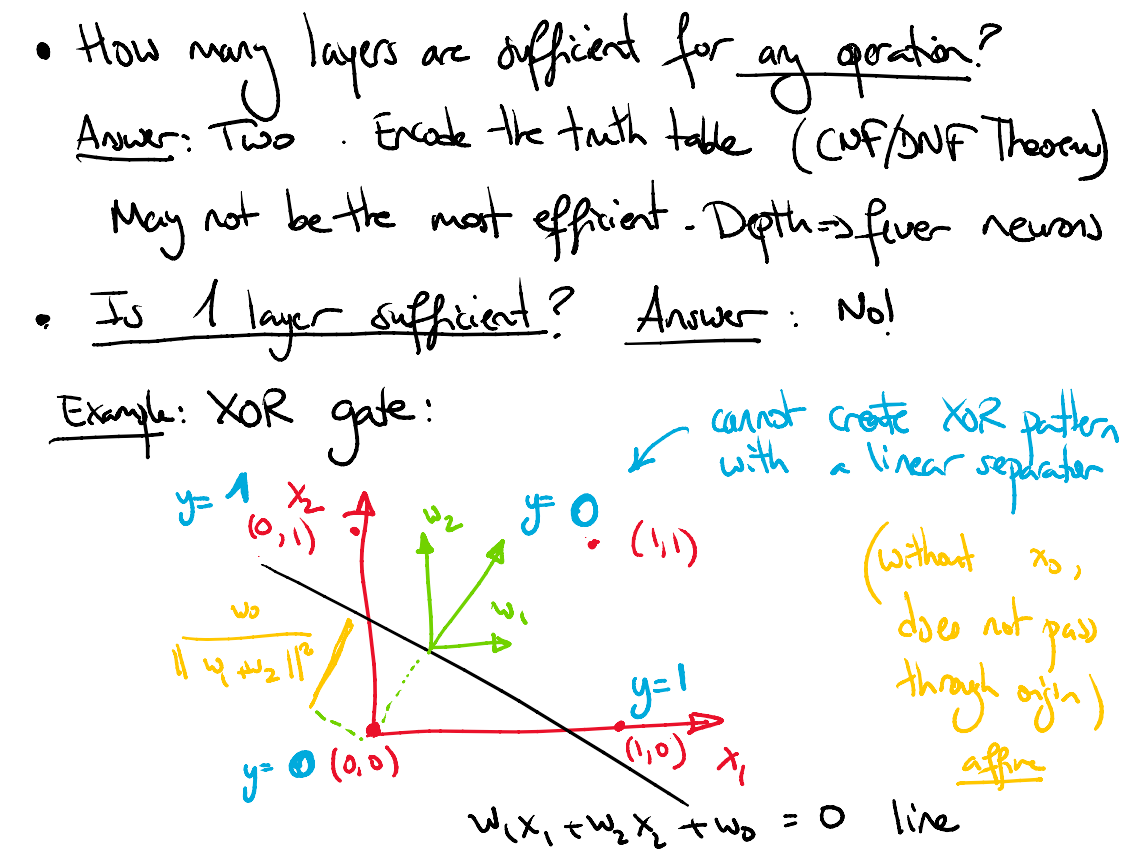 • How many layers are sufficient for any operation?
Answer: Two. Encode the truth table (CNF/DNF Theorem)
May not be the most efficient. Depth ⇒ fewer neurons
• Is 1 layer sufficient? Answer: No!
Example: XOR gate:
cannot create XOR pattern
with a linear separator
y=1 x₂
(0,1)
w₂
y=0
(1,1)
(without x₀,
does not pass
through origin)
affine
w₀
‖w₁+w₂‖²
w₁
y=1
(1,0)
x₁
y=0 (0,0)
w₁x₁+w₂x₂+w₀=0 line